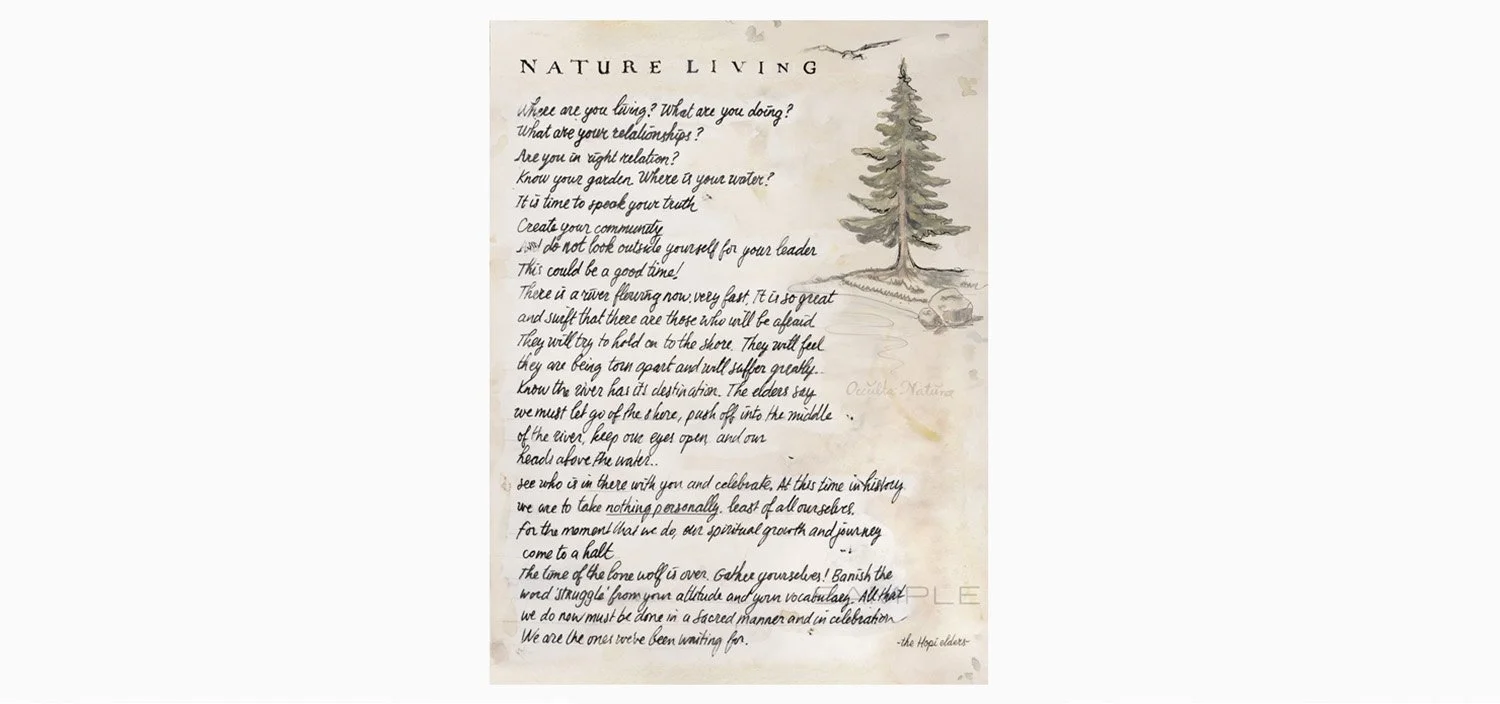 NATURE LIVING
Where are you living? What are you doing?
What are your relationships?
Are you in right relation?
Know your garden. Where is your water?
It is time to speak your truth
Create your community
And do not look outside yourself for your leader
This could be a good time!
There is a river flowing now. very fast. It is so great
and swift that there are those who will be afraid
They will try to hold on to the shore. They will feel
they are being torn apart and will suffer greatly..
Know the river has its destination. The elders say
we must let go of the shore, push off into the middle
of the river, keep our eyes open, and our
heads above the water..
see who is in there with you and celebrate. At this time in history
we are to take nothing personally. least of all ourselves.
for the moment that we do, our spiritual growth and journey
come to a halt
The time of the lone wolf is over. Gather yourselves! Banish the
word 'struggle' from your attitude and your vocabulary. All that
we do now must be done in a sacred manner and in celebration
We are the ones we've been waiting for.
-the Hopi elders-
Natura
SAMPLE